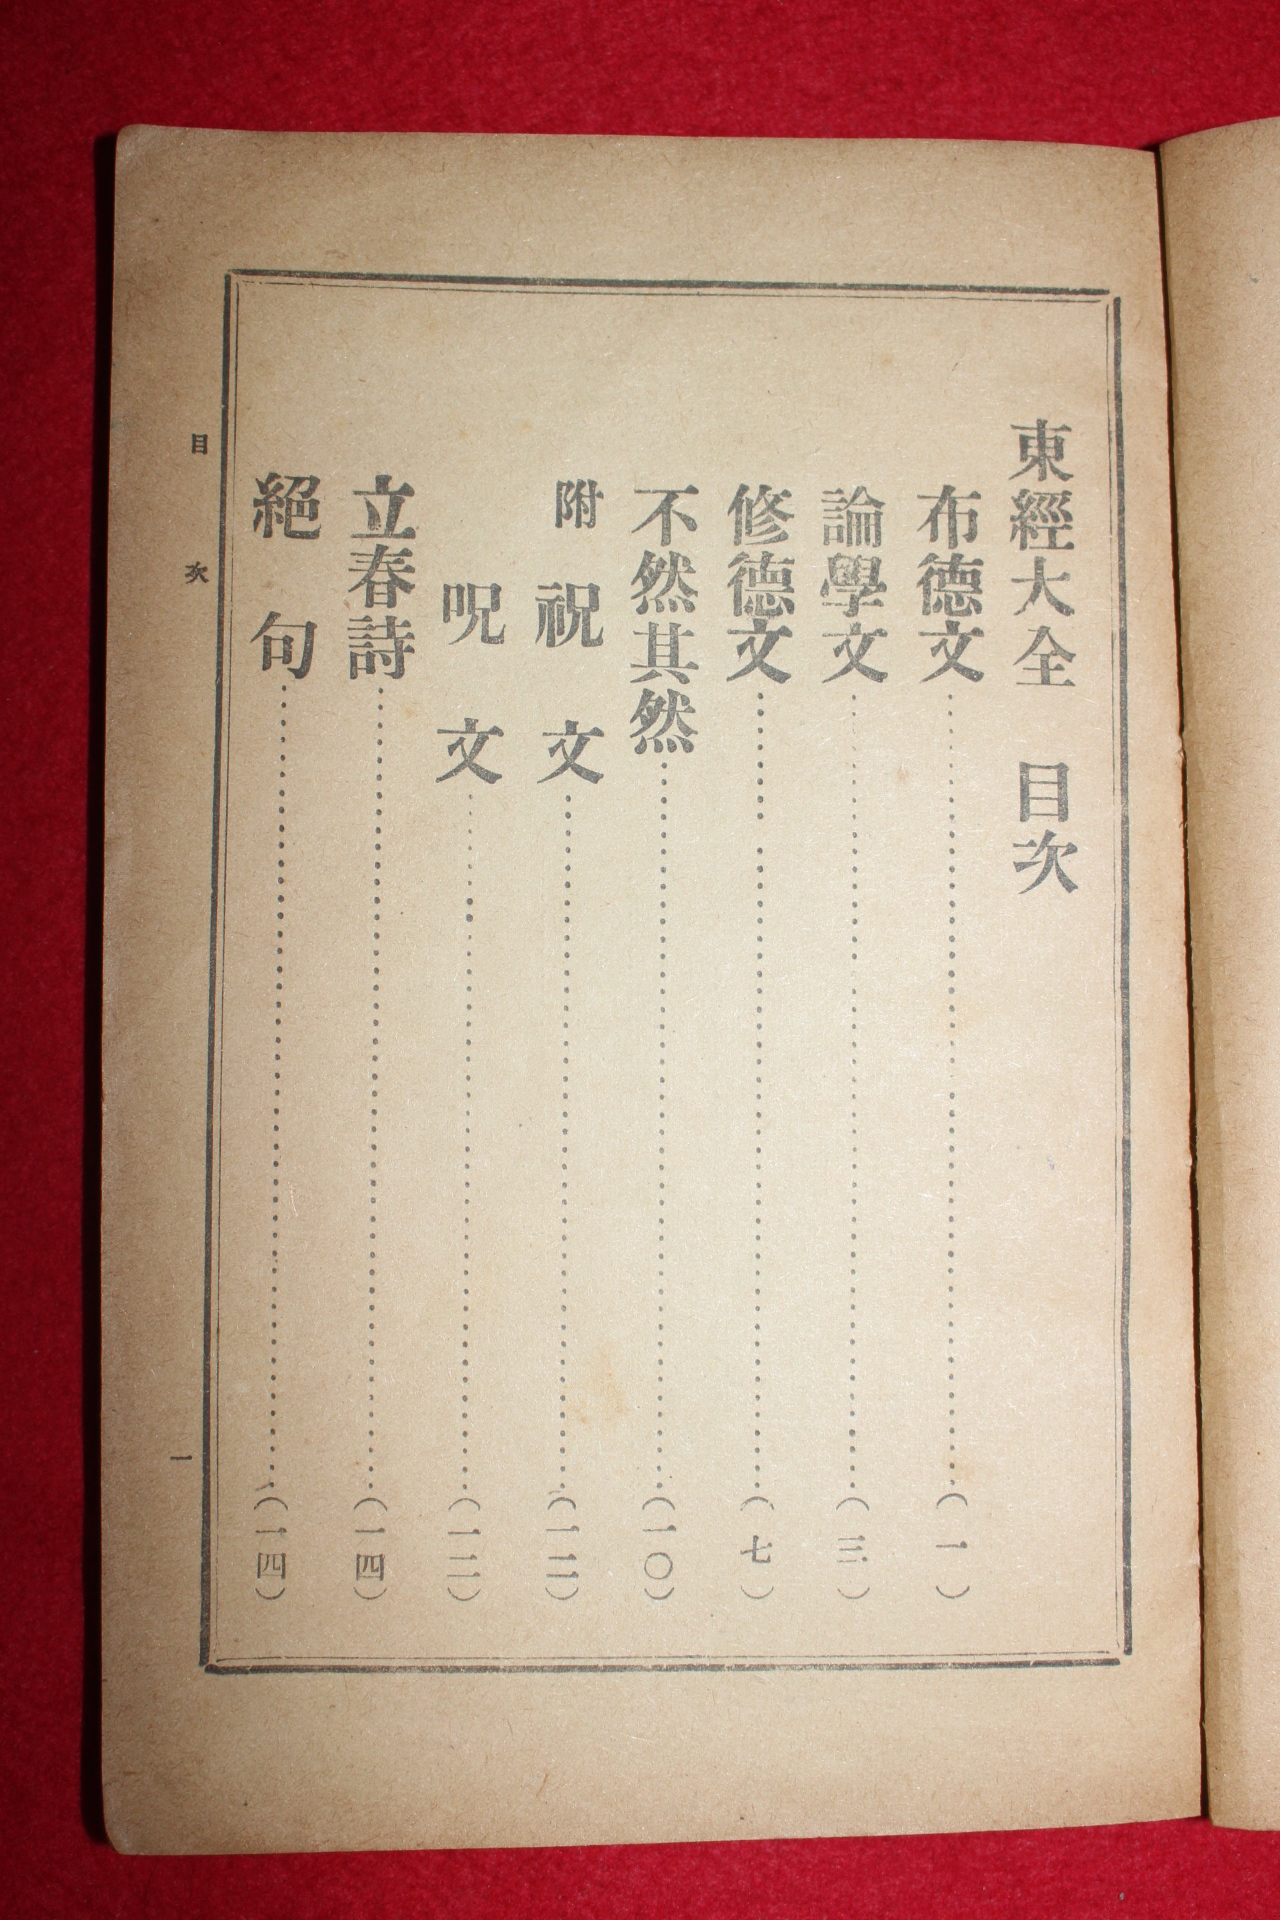 東經大全 目次
布德文……………………(一)
論學文……………………(三)
修德文……………………(七)
不然其然……………………(一〇)
附 祝文……………………(一二)
呪文……………………(一二)
立春詩……………………(一四)
絕句……………………(一四)
目次 一